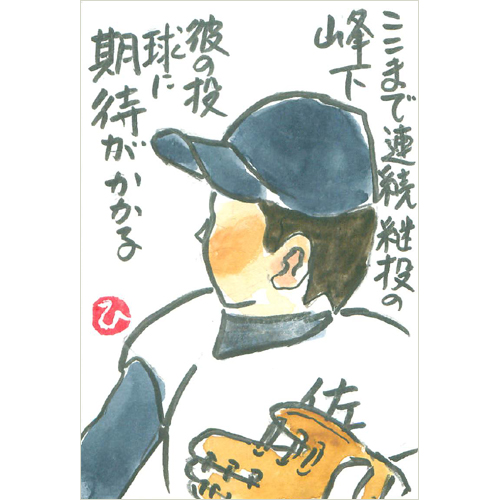 ここまで連続継投の
峰下
彼の投
球に
期待がかかる
佐
ひ